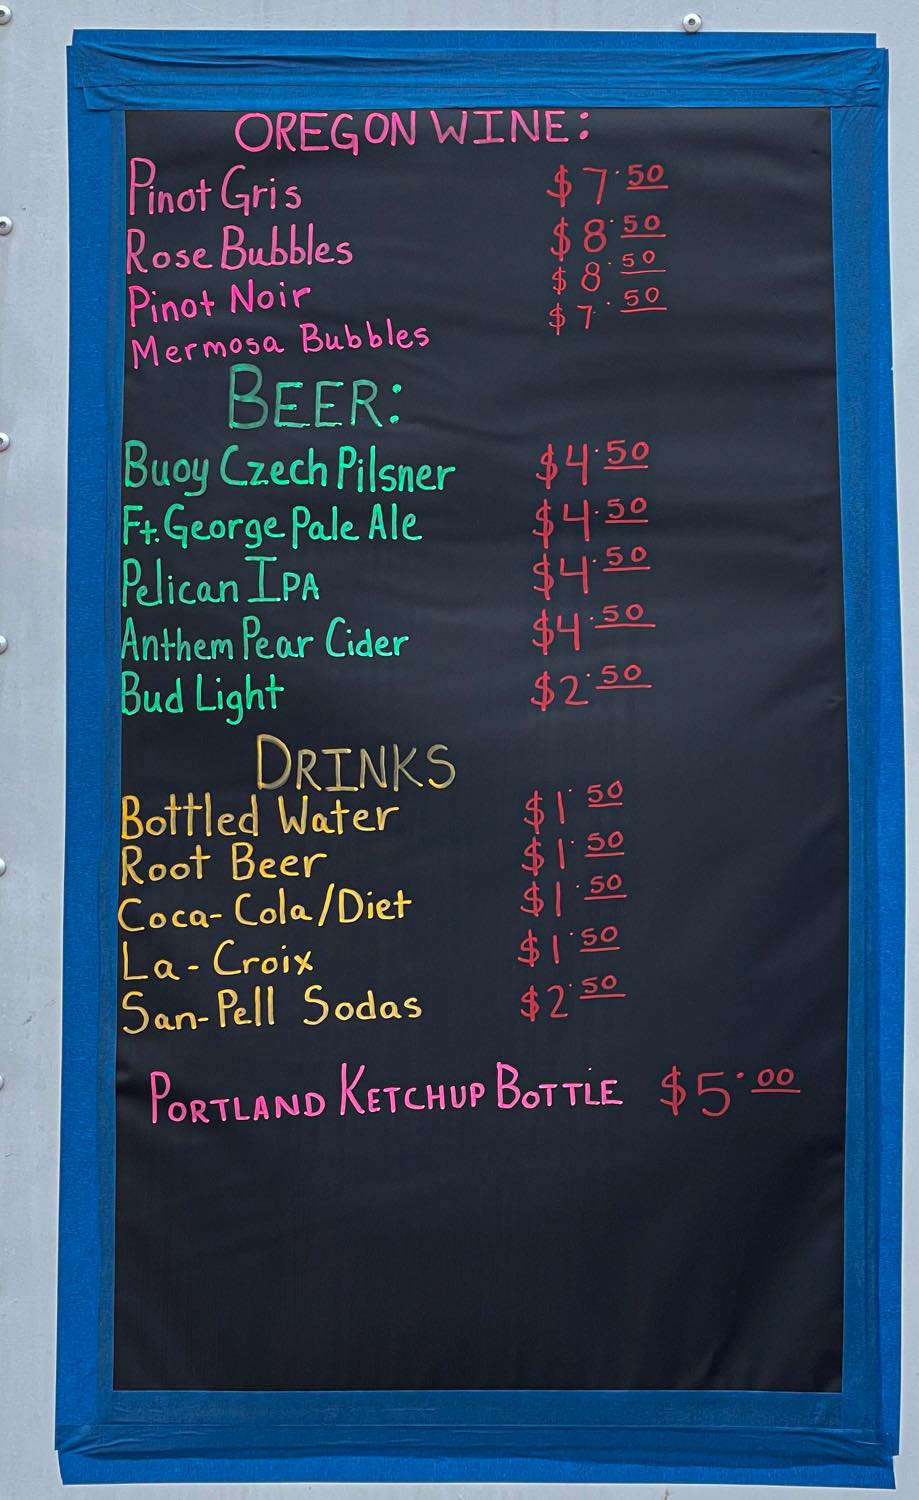 OREGON WINE:
Pinot Gris $7.50
Rose Bubbles $8.50
Pinot Noir $8.50
Mermosa Bubbles $7.50
BEER:
Buoy Czech Pilsner $4.50
Ft. George Pale Ale $4.50
Pelican IPA $4.50
Anthem Pear Cider $4.50
Bud Light $2.50
DRINKS
Bottled Water $1.50
Root Beer $1.50
Coca-Cola/Diet $1.50
La-Croix $1.50
San-Pell Sodas $2.50
PORTLAND KETCHUP BOTTLE $5.00